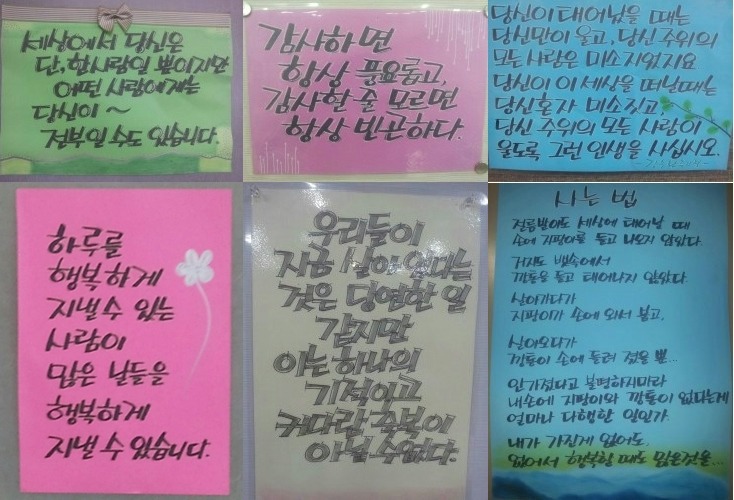 세상에서 당신은
단, 한사람일 뿐이지만
어떤 사람에게는
당신이 ~
전부일 수도 있습니다.
감사하면
항상 풍요롭고,
감사할 줄 모르면
항상 빈곤하다.
당신이 태어났을 때는
당신만이 울고, 당신 주위의
모든 사람은 미소지었지요
당신이 이 세상을 떠날때는
당신혼자 미소짓고,
당신 주위의 모든 사람이
울도록 그런 인생을 사십시오.
하루를
행복하게
지낼 수 있는
사람이
많은 날들을
행복하게
지낼 수 있습니다.
우리들이
지금 살아 있다는
것은 당연한 일
같지만
이는 하나의
기적이고
커다란 축복이
아닐 수 없다.
사는 법
절름발이도 세상에 태어날 때
손에 지팡이를 들고 나오지 않았다.
거지도 뱃속에서
깡통을 들고 태어나지 않았다.
살아가다가
지팡이가 손에 와서 붙고,
살아오다가
깡통이 손에 들려 졌을 뿐...
안가졌다고 불평하지마라
내손에 지팡이와 깡통이 없다는게
얼마나 다행한 일인가.
내가 가진게 없어도,
없어서 행복할 때도 많은것을...